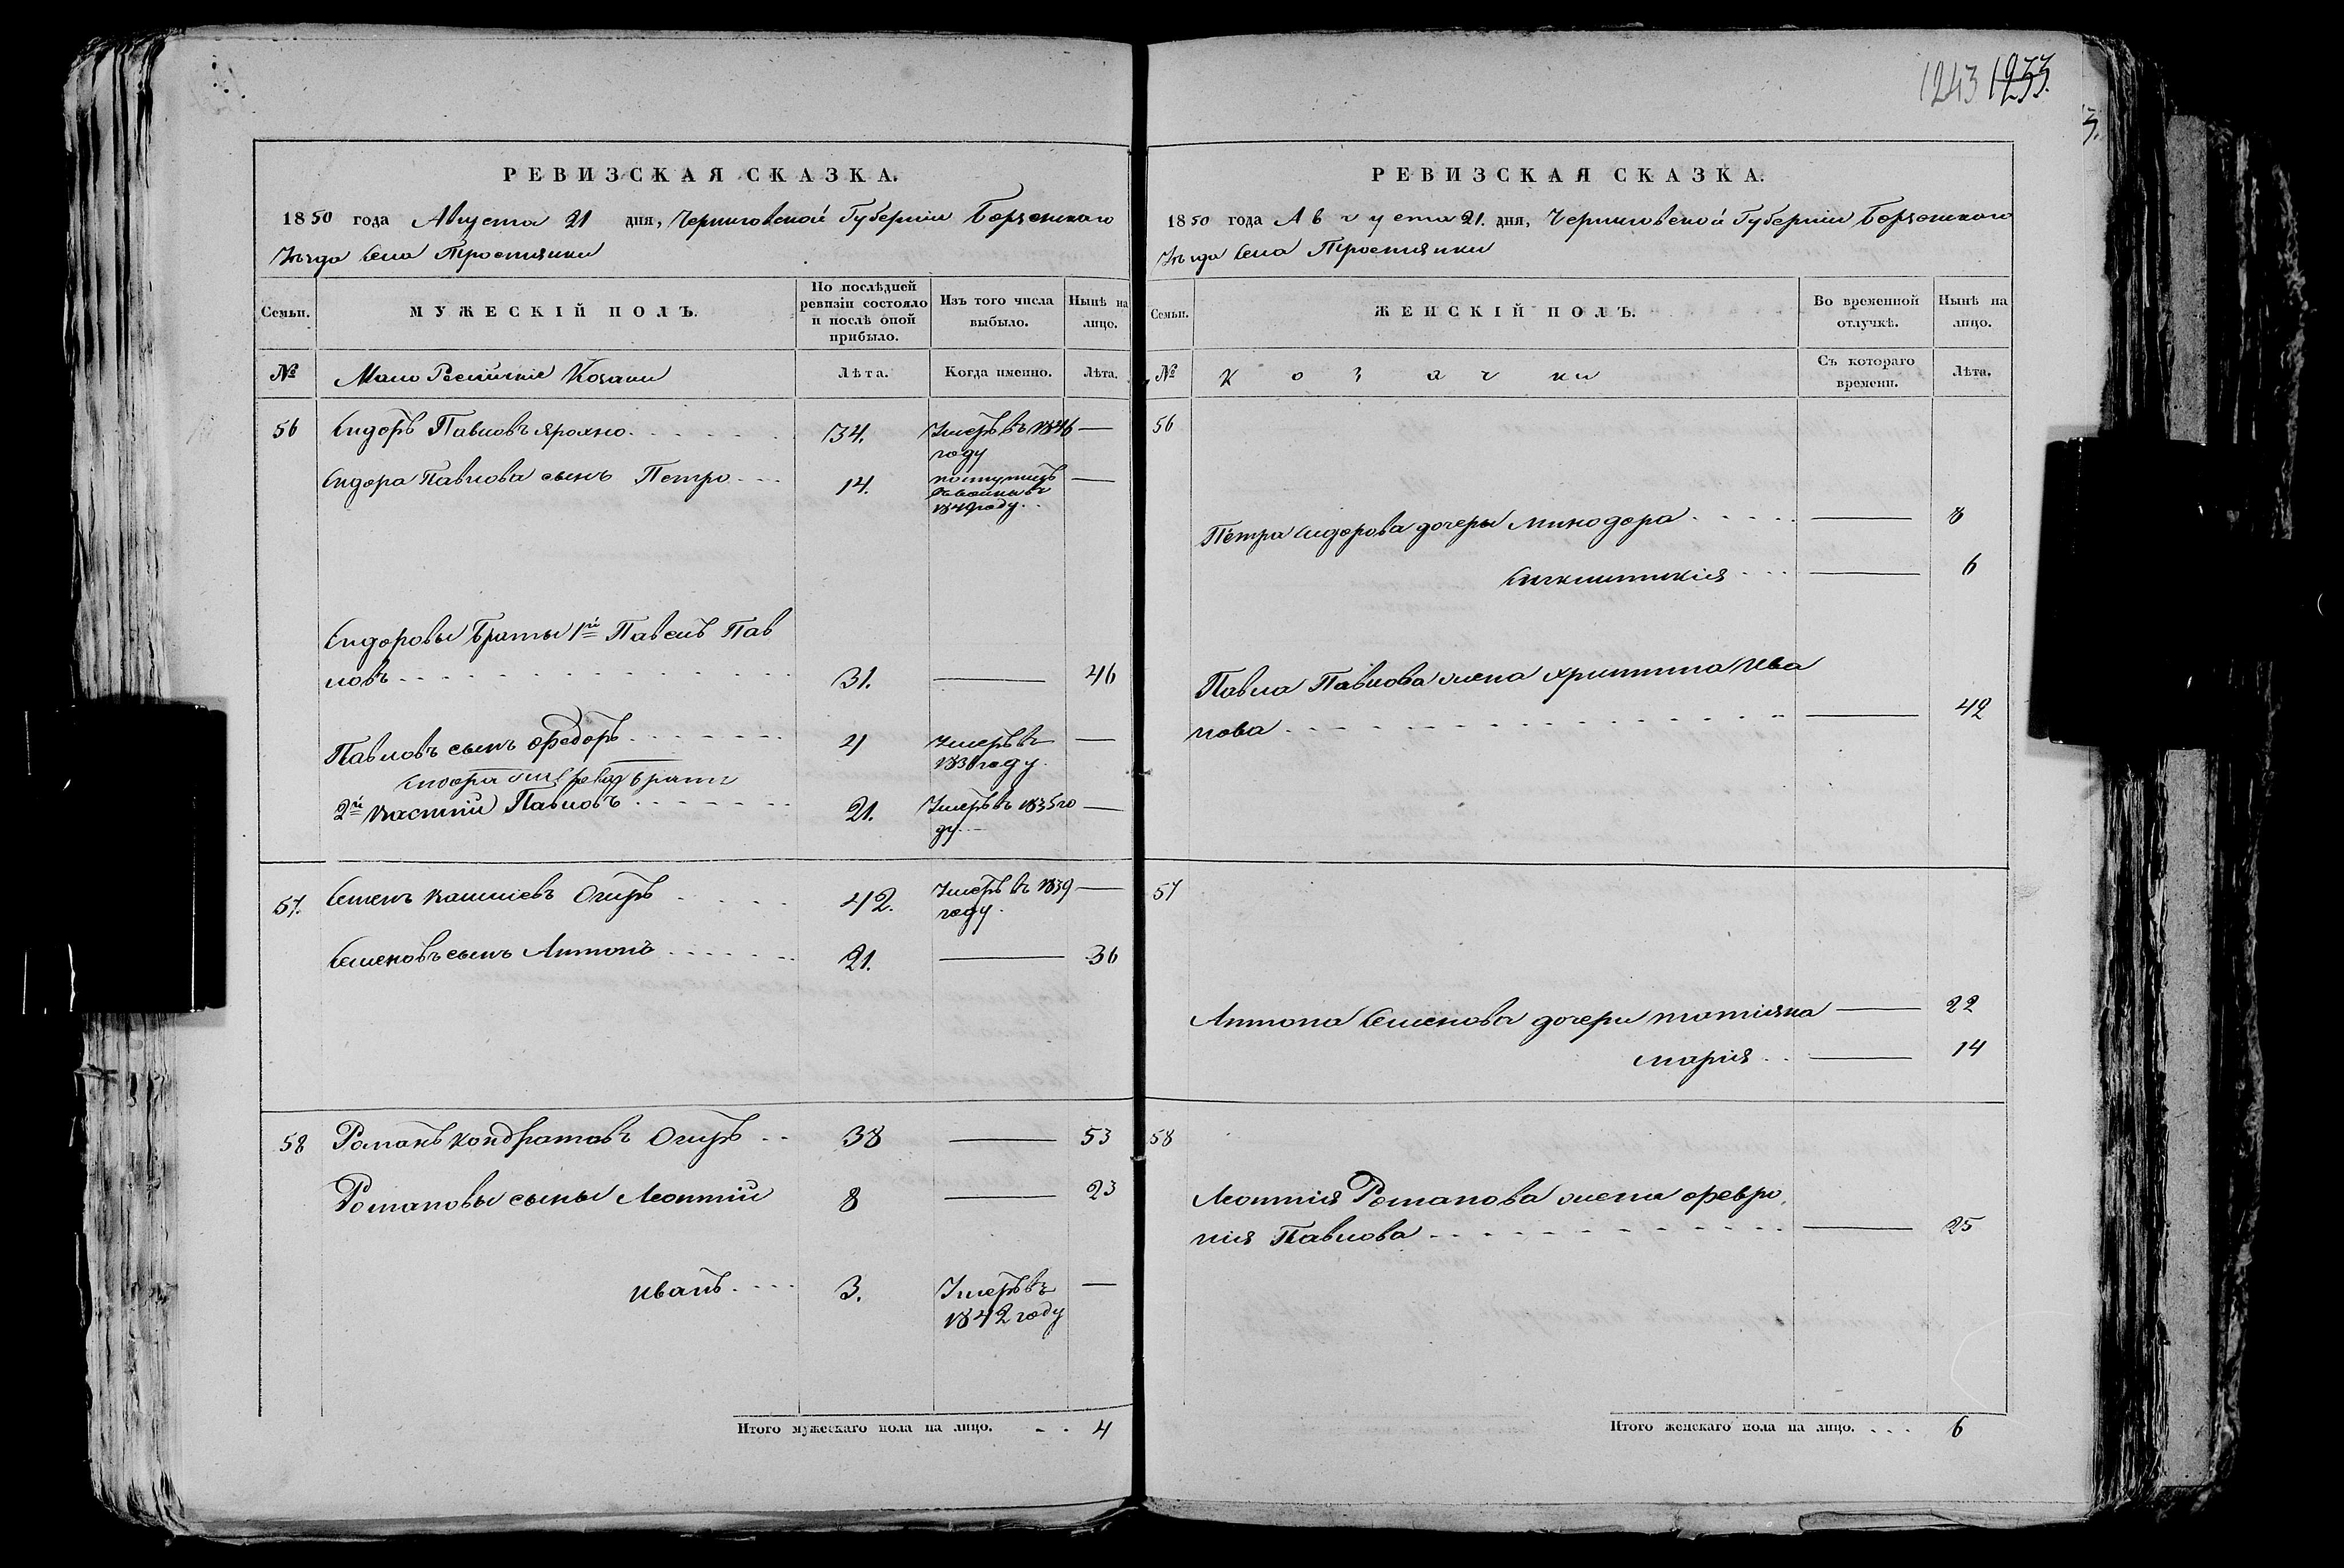 1243 1233.
3.
РЕВИЗСКАЯ СКАЗКА.
1850 года Августа 21 дня, Черниговской Губерніи Борзенского
Уѣзда Села Тростянки
Семьи.
МУЖЕСКІЙ ПОЛЪ.
По послѣдней ревизіи состояло и послѣ оной прибыло.
Изъ того числа выбыло.
Нынѣ на лицо.
№
Мало Россійскіе Козаки
Лѣта.
Когда именно.
Лѣта.
56 Сидоръ Павловъ Ярохно 34. Умеръ въ 1846 —
году
Сидора Павлова сынъ Петро 14. поступилъ —
1849 году
Сидоровы Браты 1й Павелъ Пав
ловъ 31. — 46
Павловъ сынъ Федоръ 4 Умеръ въ —
183 году.
Сидора братъ
2й Павловъ 21. Умеръ въ 1835 го —
ду.
57. Семенъ Огиръ 42. Умеръ въ 1839 —
году.
Семеновъ сынъ Антонъ 21. — 36
58 Романъ Кондратовъ Огиръ 38 — 53
Романовы сыны Леонтий 8 — 23
Иванъ 3. Умеръ въ —
1842 году
Итого мужескаго пола на лицо. 4
РЕВИЗСКАЯ СКАЗКА.
1850 года Августа 21. дня, Черниговской Губерніи Борзенского
Уѣзда Села Тростянки
Семьи.
ЖЕНСКІЙ ПОЛЪ.
Во временной отлучкѣ.
Нынѣ на лицо.
№
Козачки
Съ котораго времени.
Лѣта.
56
Петра Сидорова дочери Минодора — 8
— 6
Павла Павлова жена Христина Ива
нова — 42
57
Антона Семенова дочери татіяна — 22
марія — 14
58
Леонтия Романова жена Февро
нія Павлова — 25
Итого женскаго пола на лицо. 6